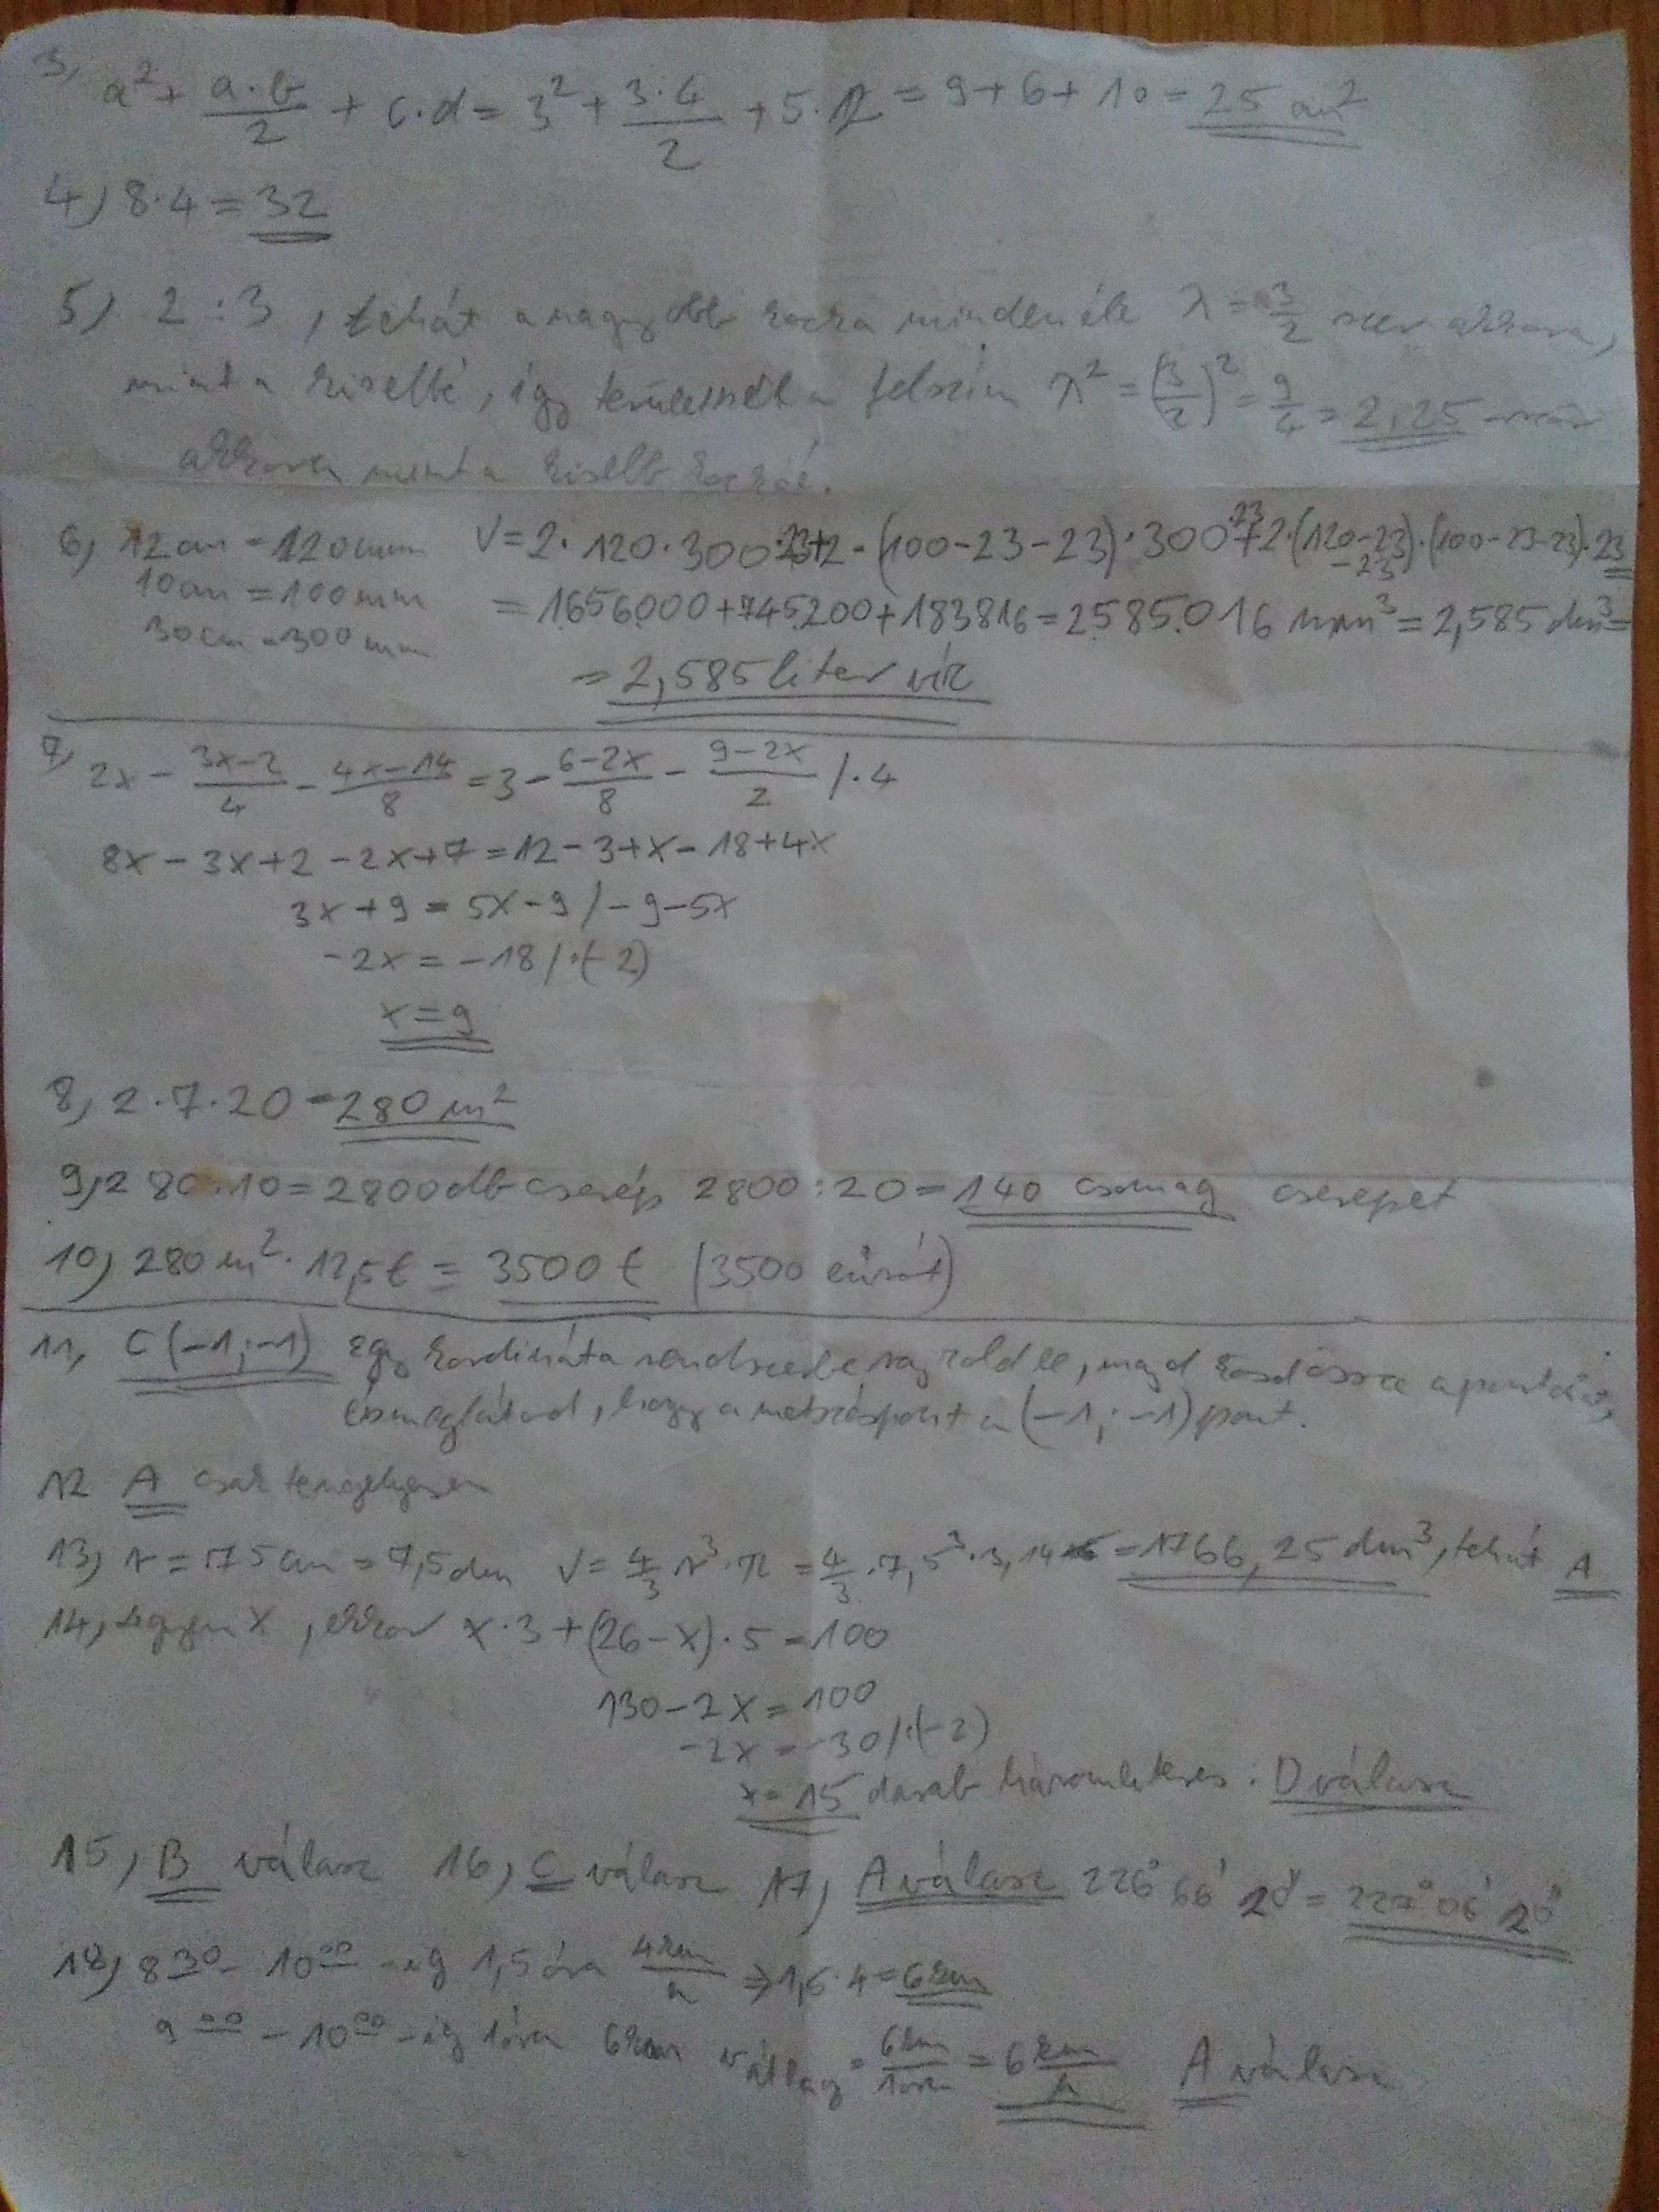 3, a² + a·b/2 + c·d = 3² + 3·4/2 + 5·2 = 9+6+10 = 25 cm²
4) 8·4 = 32
5) 2:3, tehát a nagyobb kocka minden éle λ = 3/2 szer akkora,
mint a kisebbé, így területnél a felszín λ² = (3/2)² = 9/4 = 2,25 -szor
akkora mint a kisebb kockáé.
6, 12cm = 120mm V = 2·120·300·23+2·(100-23-23)·300·23+2·(120-23-23)·(100-23-23)·23
10cm = 100mm = 1656000+745200+183816 = 2585.016 mm³ = 2,585 dm³ =
30cm = 300mm
= 2,585 liter víz
7, 2x - 3x-2/4 - 4x-14/8 = 3 - 6-2x/8 - 9-2x/2 /·4
8x - 3x+2 - 2x+7 = 12-3+x-18+4x
3x+9 = 5x-9 /-9-5x
-2x = -18 /:(-2)
x = 9
8, 2·7·20 = 280 m²
9, 280·10 = 2800 db cserép 2800:20 = 140 csomag cserepet
10) 280 m²·12,5€ = 3500 € (3500 eurót)
11, C(-1;-1) Egy koordináta rendszerbe rajzold le, majd kösd össze a pontokat,
és meglátod, hogy a metszéspont a (-1;-1) pont.
12 A csak tengelyesen
13) r = 75cm = 7,5dm V = 4/3 r³·π = 4/3·7,5³·3,14 = 1766,25 dm³, tehát A
14, legyen x, ekkor x·3+(26-x)·5 = 100
130-2x = 100
-2x = -30 /:(-2)
x = 15 darab háromliteres: D válasz
15, B válasz 16, C válasz 17, A válasz 226° 66' 20" = 227° 06' 20"
18) 8 30 - 10 00 -ig 1,5 óra 4km/h ⇒ 1,5·4 = 6km
9 00 - 10 00 -ig 1 óra 6km v átlag = 6km/1óra = 6 km/h A válasz